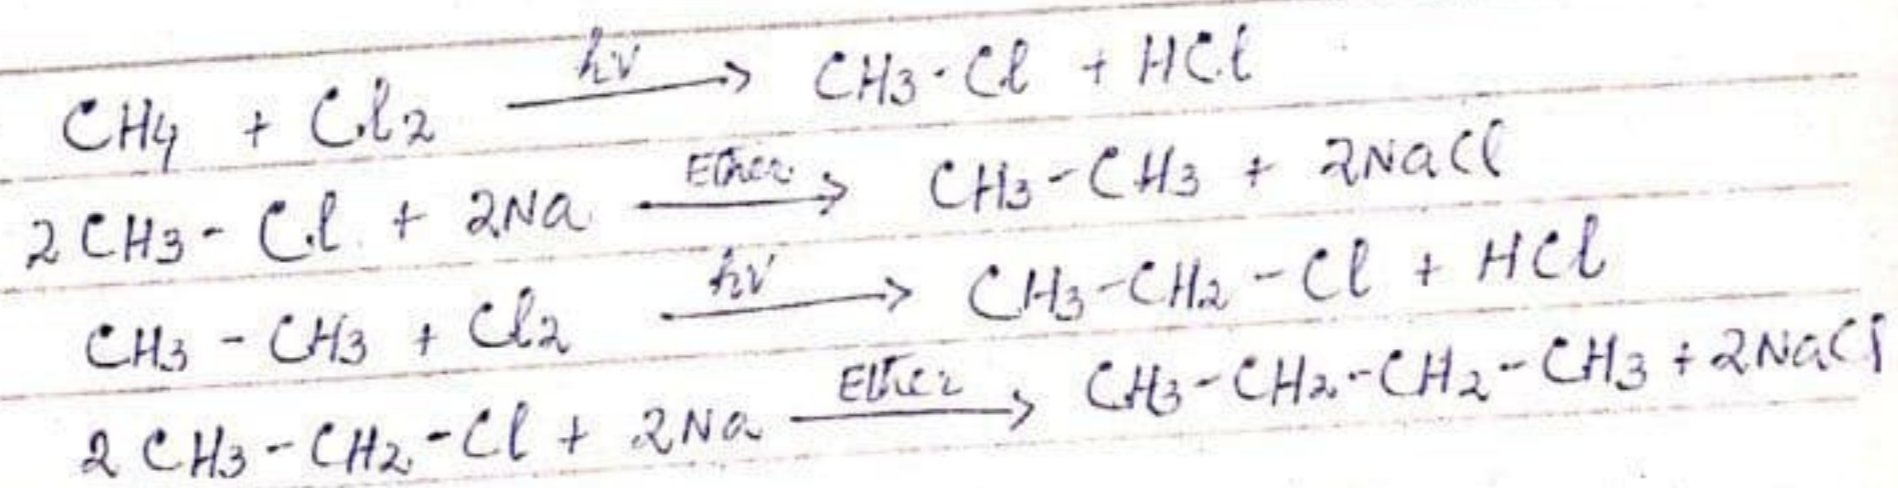 CH4 + Cl2 —hv→ CH3-Cl + HCl
2CH3-Cl + 2Na —Ether→ CH3-CH3 + 2NaCl
CH3-CH3 + Cl2 —hv→ CH3-CH2-Cl + HCl
2CH3-CH2-Cl + 2Na —Ether→ CH3-CH2-CH2-CH3 + 2NaCl